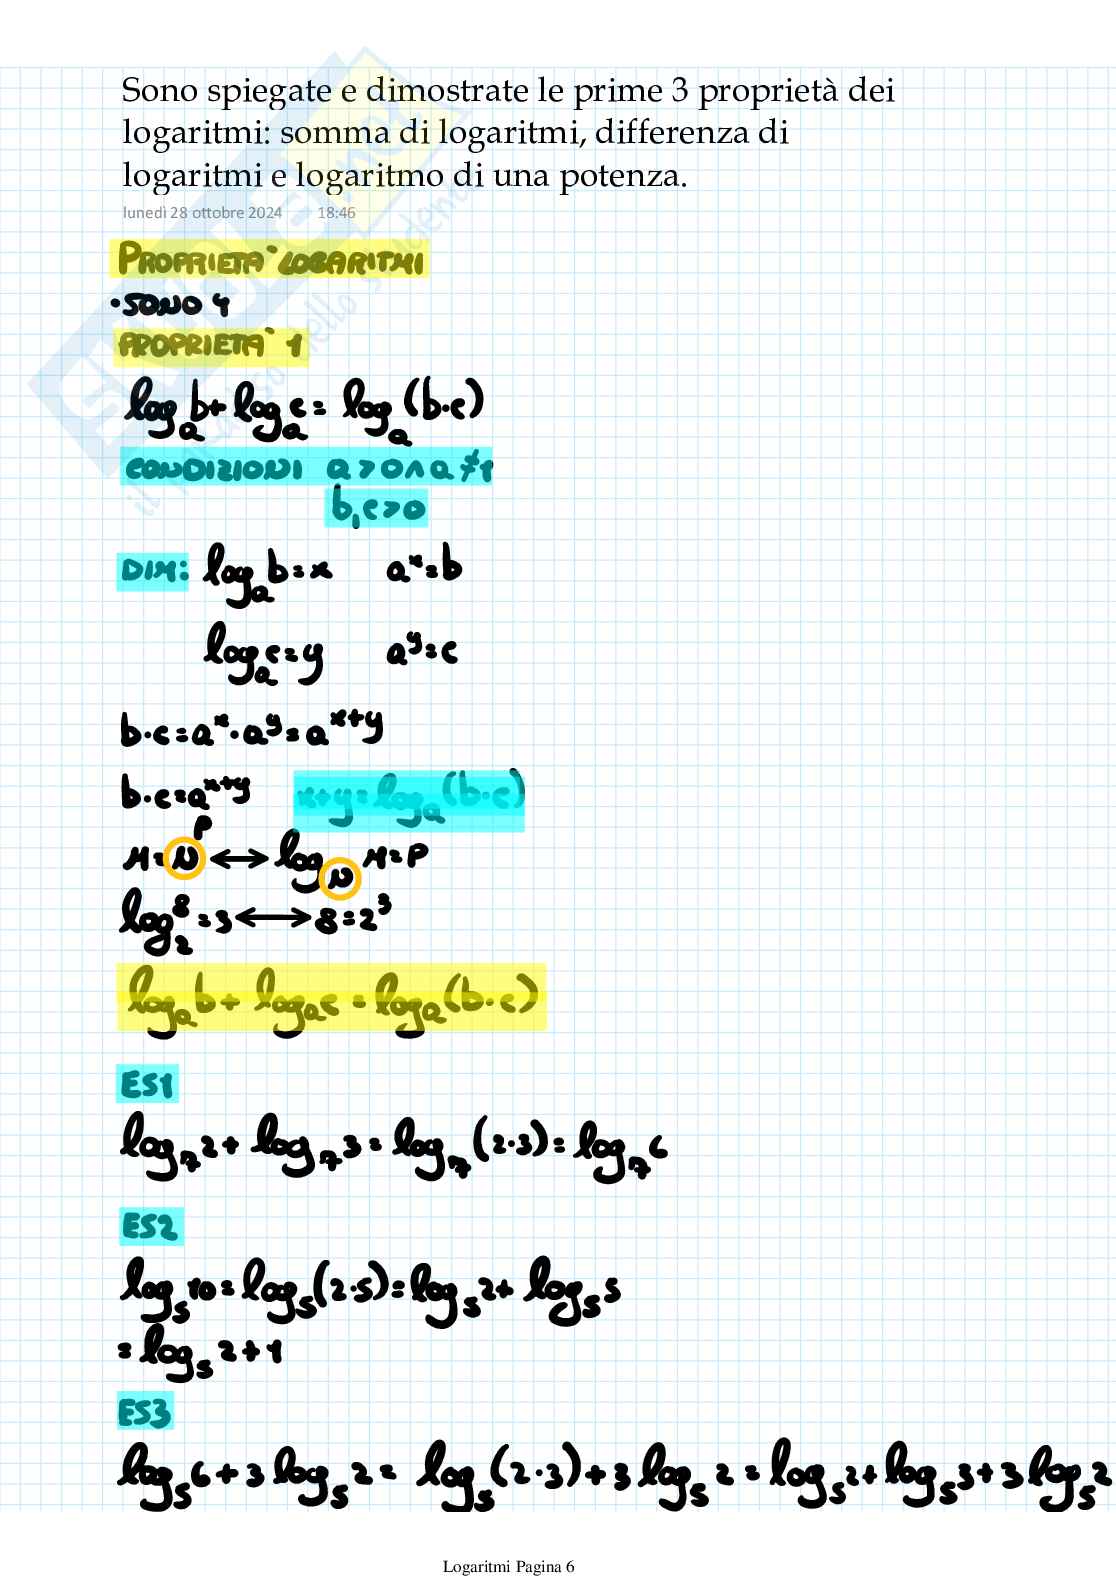 Sono spiegate e dimostrate le prime 3 proprietà dei
logaritmi: somma di logaritmi, differenza di
logaritmi e logaritmo di una potenza.
lunedì 28 ottobre 2024 18:46
PROPRIETA' LOGARITMI
• SONO 4
PROPRIETA' 1
logₐ b + logₐ c = logₐ (b·c)
CONDIZIONI a > 0 ∧ a ≠ 1
b, c > 0
DIM: logₐ b = x aˣ = b
logₐ c = y aʸ = c
b·c = aˣ · aʸ = aˣ⁺ʸ
b·c = aˣ⁺ʸ x+y = logₐ (b·c)
M = Nᴾ ↔ log_N M = P
log₂ 8 = 3 ↔ 8 = 2³
logₐ b + logₐ c = logₐ (b·c)
ES1
log₇ 2 + log₇ 3 = log₇ (2·3) = log₇ 6
ES2
log₅ 10 = log₅ (2·5) = log₅ 2 + log₅ 5
= log₅ 2 + 1
ES3
log₅ 6 + 3 log₅ 2 = log₅ (2·3) + 3 log₅ 2 = log₅ 2 + log₅ 3 + 3 log₅ 2
Logaritmi Pagina 6